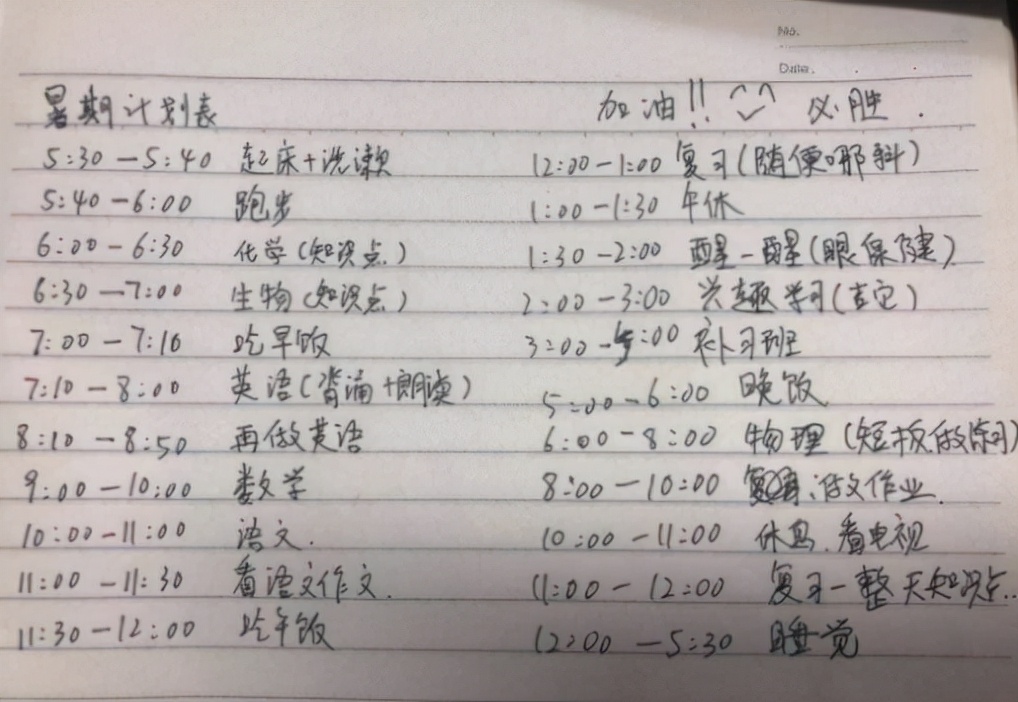 No.
Date.
暑期计划表
加油!! ^^ 必胜.
5:30 — 5:40 起床+洗漱
5:40 — 6:00 跑步
6:00 — 6:30 化学(知识点)
6:30 — 7:00 生物(知识点)
7:00 — 7:10 吃早饭
7:10 — 8:00 英语(背诵+朗读)
8:10 — 8:50 再做英语
9:00 — 10:00 数学
10:00 — 11:00 语文.
11:00 — 11:30 看语文作文.
11:30 — 12:00 吃午饭
12:00 — 1:00 复习(随便哪科)
1:00 — 1:30 午休
1:30 — 2:00 醒一醒(眼保健)
2:00 — 3:00 兴趣学习(吉它)
3:00 — 5:00 补习班
5:00 — 6:00 晚饭
6:00 — 8:00 物理(短板做练习)
8:00 — 10:00 做作业.
10:00 — 11:00 休息.看电视
11:00 — 12:00 复习一整天知识点..
12:00 — 5:30 睡觉